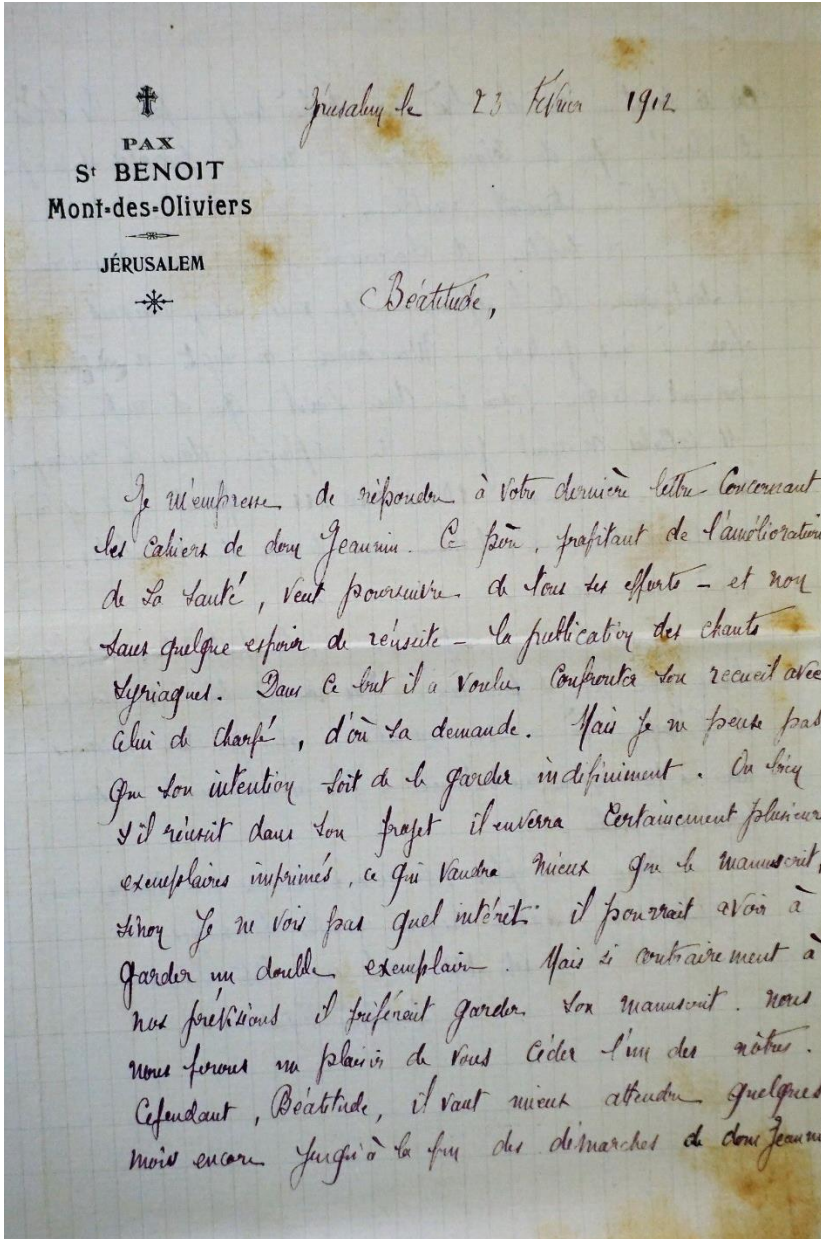 Jérusalem le 23 Février 1912
PAX
St BENOIT
Mont-des-Oliviers
JÉRUSALEM
Béatitude,
Je m'empresse de répondre à votre dernière lettre concernant
les cahiers de dom Jeannin. Ce père, profitant de l'amélioration
de sa santé, veut poursuivre de tous ses efforts – et non
sans quelque espoir de réussite – la publication des chants
syriaques. Dans ce but il a voulu confronter son recueil avec
celui de Charfé, d'où sa demande. Mais je ne pense pas
que son intention soit de le garder indéfiniment. Ou bien
s'il réussit dans son projet il enverra certainement plusieurs
exemplaires imprimés, ce qui vaudra mieux que le manuscrit,
sinon je ne vois pas quel intérêt il pourrait avoir à
garder un double exemplaire. Mais si contrairement à
nos prévisions il préférait garder son manuscrit. nous
nous ferons un plaisir de vous céder l'un des nôtres.
Cependant, Béatitude, il vaut mieux attendre quelques
mois encore jusqu'à la fin des démarches de dom Jeannin